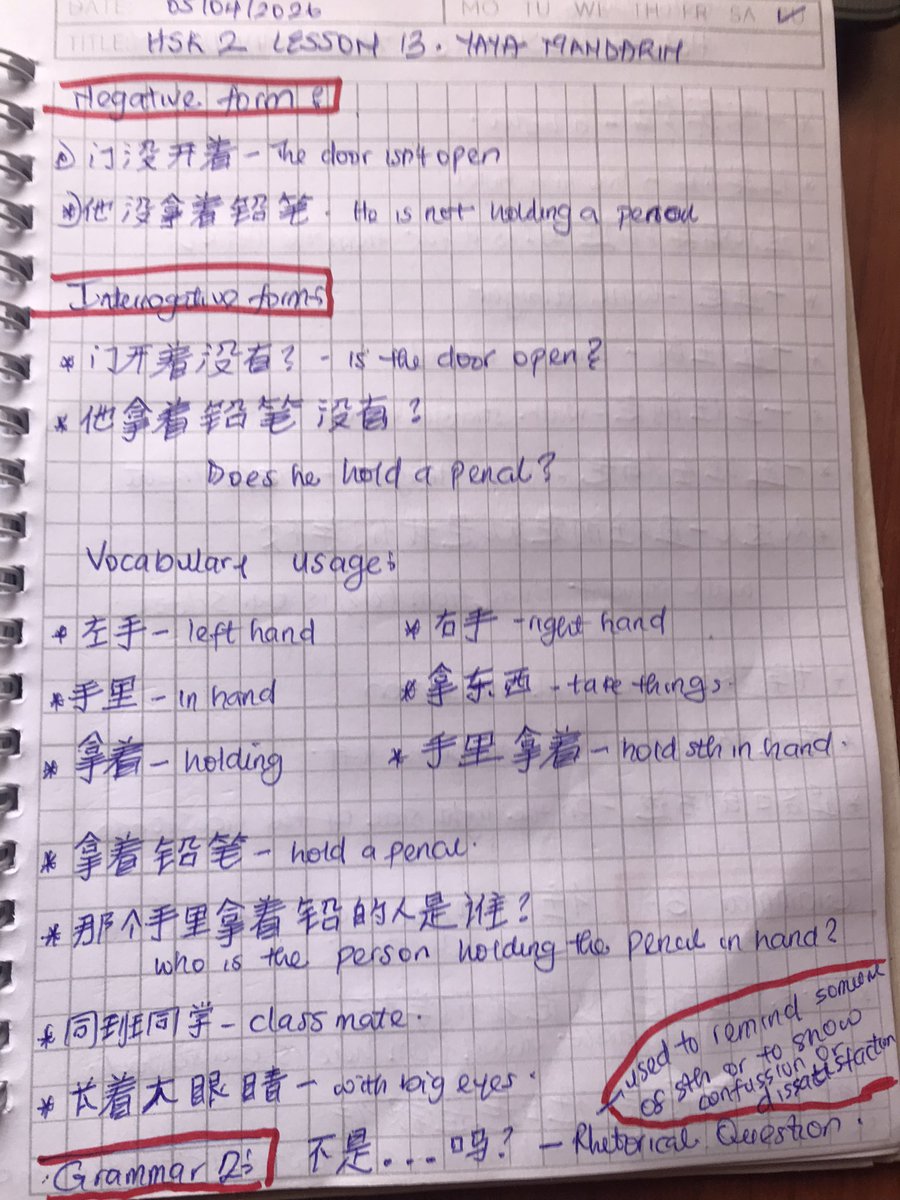 DATE: 05/04/2026 MO TU WE TH FR SA
TITLE: HSK 2 LESSON 13. YAYA MANDARIN
Negative form:
门没开着 - The door isn't open
他没拿着铅笔. He is not holding a pencil
Interrogative forms
* 门开着没有? - is the door open?
* 他拿着铅笔没有?
Does he hold a pencil?
Vocabulary usage:
* 左手 - left hand * 右手 - right hand
* 手里 - in hand * 拿东西 - take things.
* 拿着 - holding * 手里拿着 - hold sth in hand.
* 拿着铅笔 - hold a pencil.
* 那个手里拿着铅的人是谁?
who is the person holding the pencil in hand?
* 同班同学 - class mate.
* 长着大眼睛 - with big eyes.
used to remind someone
of sth or to show
confussion or
dissatisfaction
Grammar 2: 不是....吗? - Rhetorical Question.